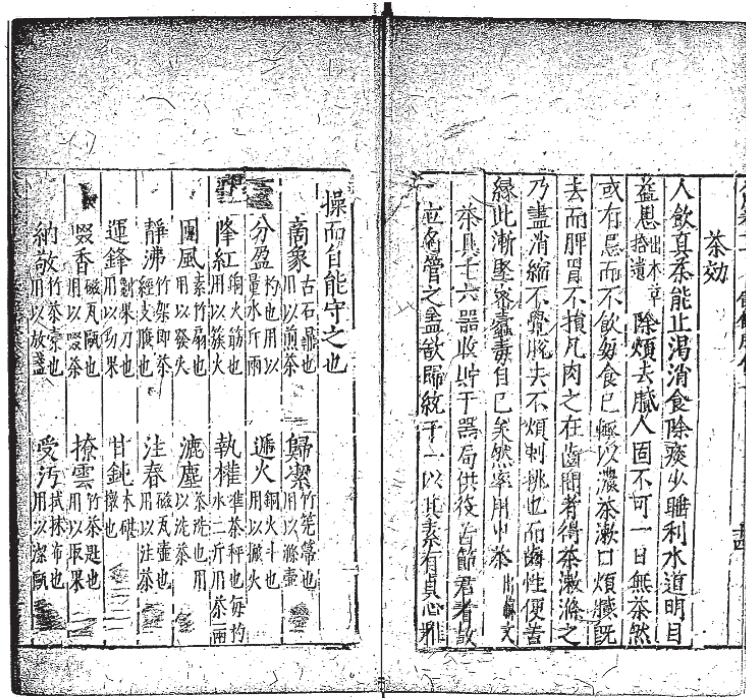 茶効
人飲真茶能止渴消食除痰少睡利水道明目
益思出本草拾遺除煩去膩人固不可一日無茶然
或有忌而不飲每食已輒以濃茶漱口煩膩既
去而脾胃不損凡肉之在齒間者得茶漱滌之
乃盡消縮不覺脫去不煩刺挑也而齒性便苦
緣此漸堅密蠹毒自已矣然率用中茶出蘇文
茶具十六器收貯于器局供役苦節君者故
立名管之蓋欲歸統于一以其素有貞心雅
操而自能守之也
商象古石鼎也用以煎茶 歸潔竹筅箒也用以滌壺
分盈杓也用以量水斤兩 遞火銅火斗也用以搬火
降紅銅火筯也用以簇火 執權準茶秤也每杓水二斤用茶一兩
團風素竹扇也用以發火 漉塵茶洗也用以洗茶
靜沸竹架即茶經支腹也 注春磁瓦壺也用以注茶
運鋒劖果刀也用以切果 甘鈍木碪墩也
啜香磁瓦甌也用以啜茶 撩雲竹茶匙也用以取果
納敬竹茶橐也用以放盞 受汚拭抹布也用以潔甌